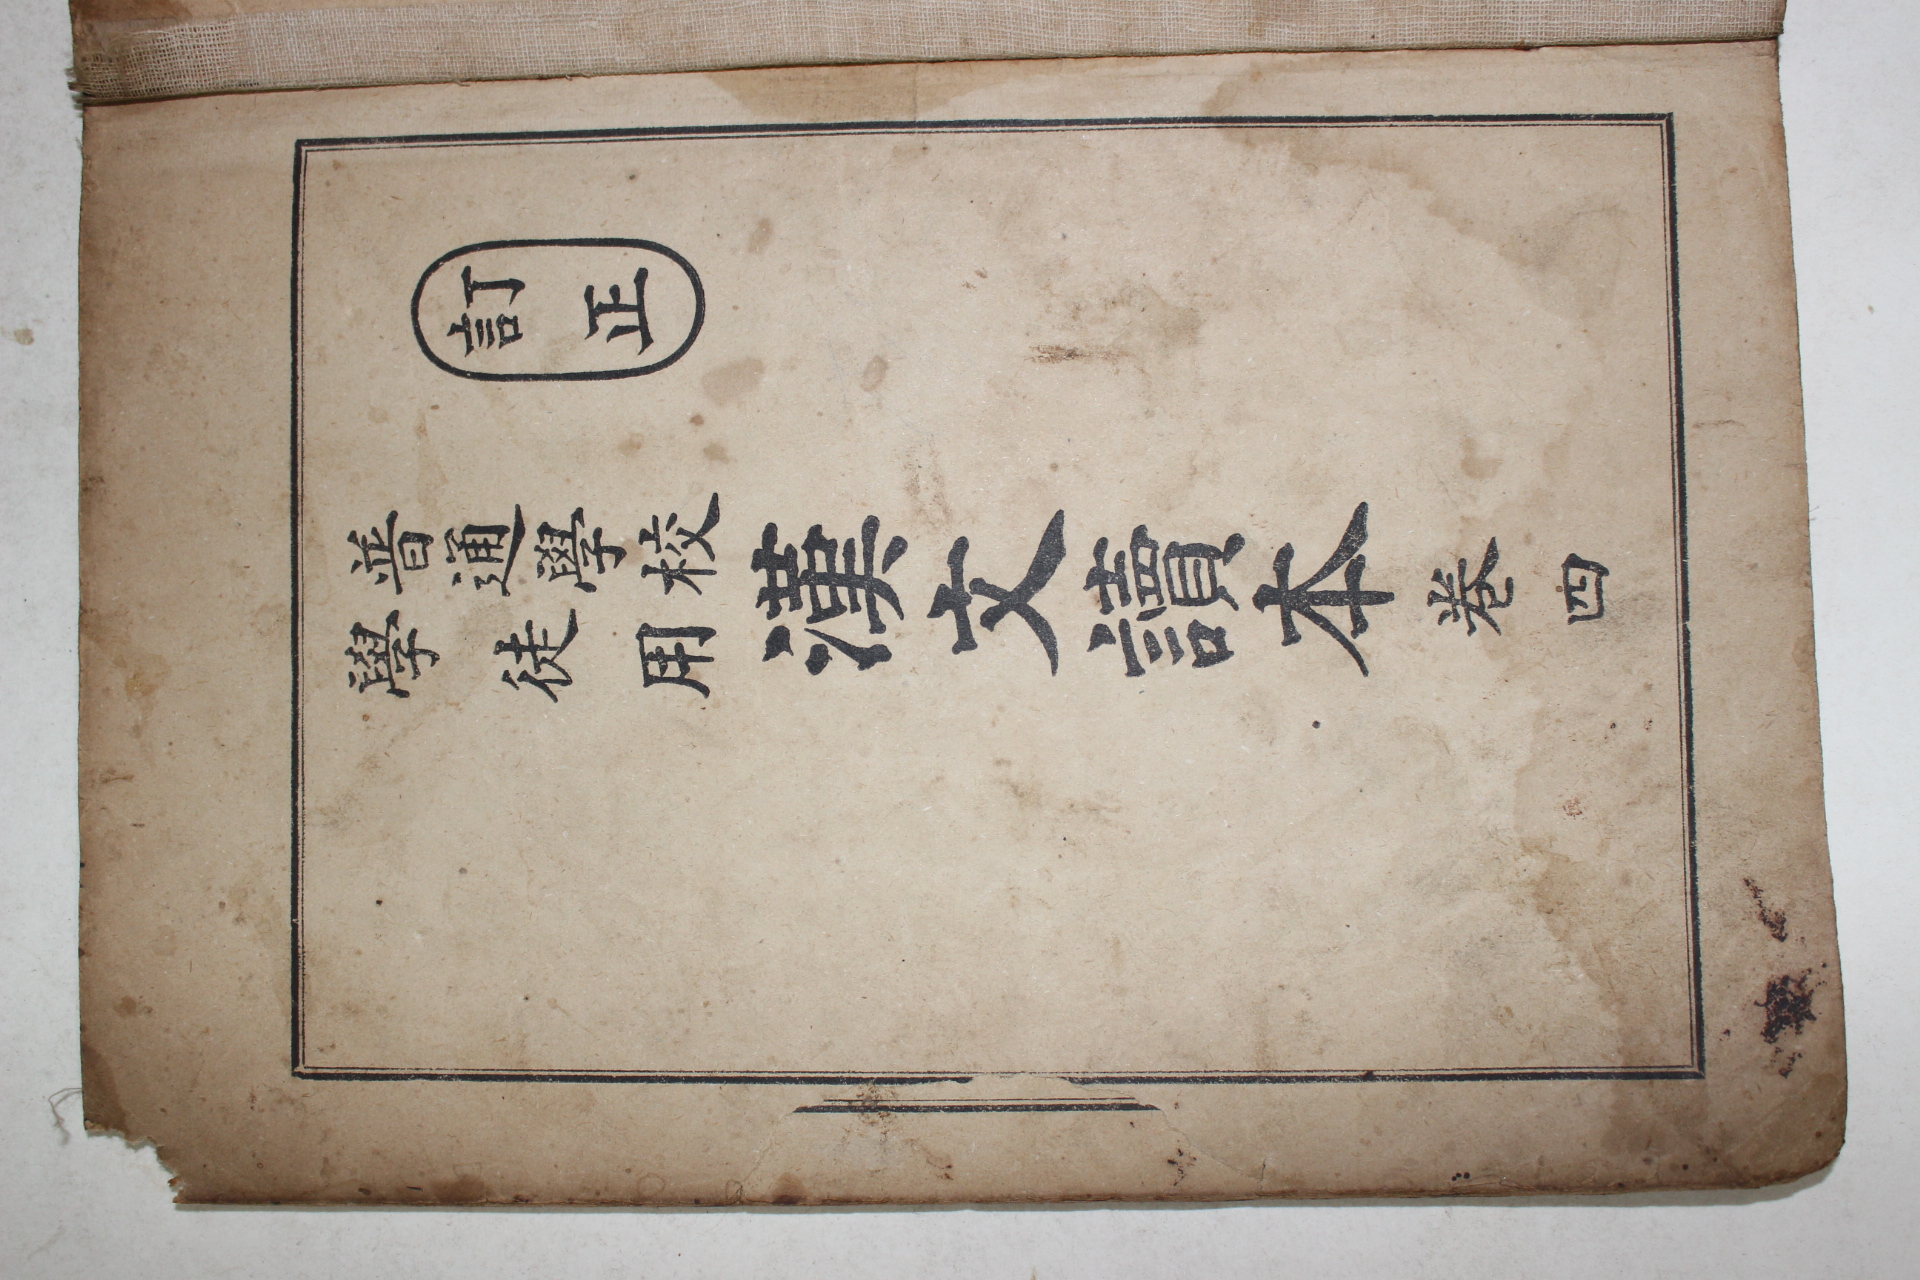 訂正
普通學校
學徒用
漢文讀本 卷四